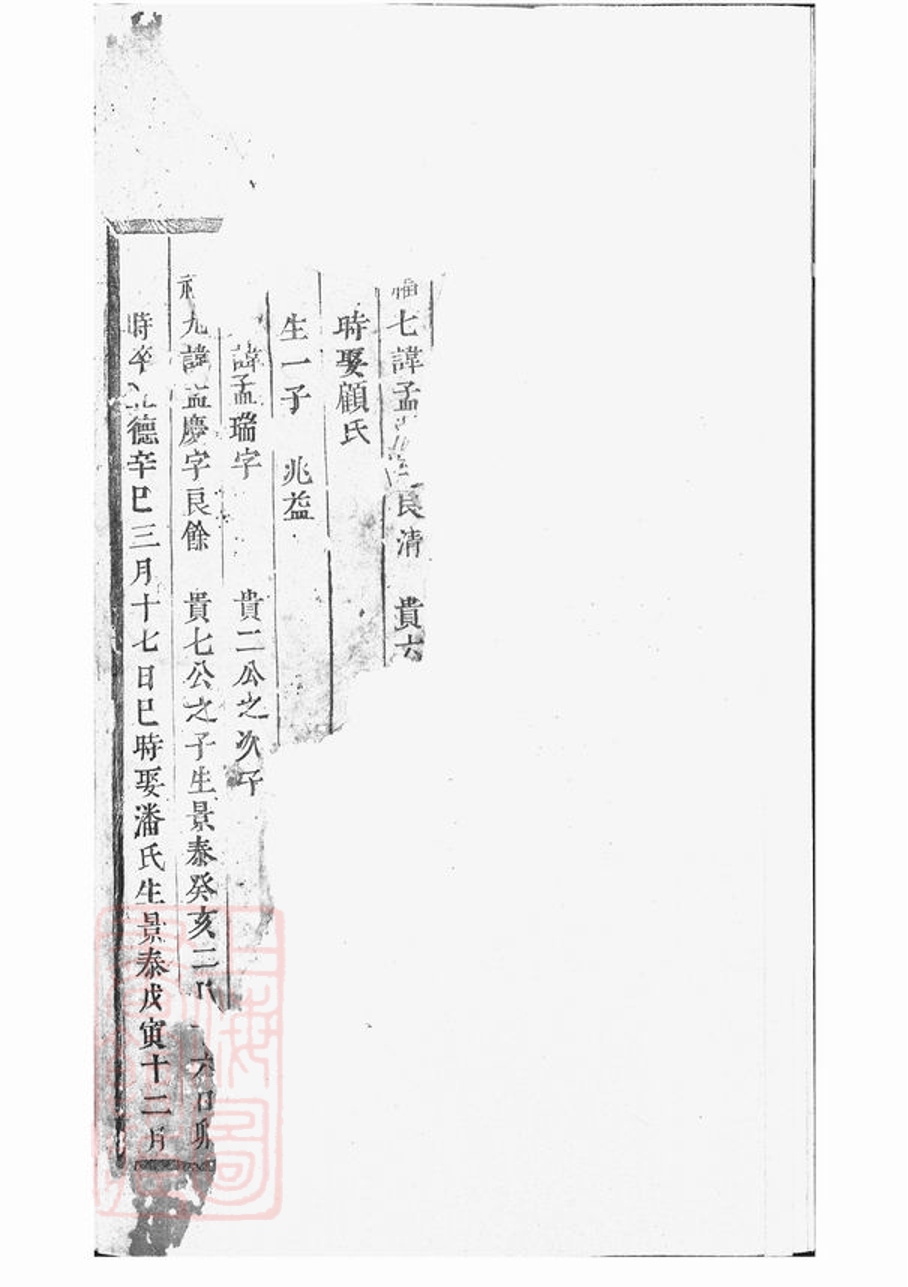 福七諱孟良清 貴六
時娶顧氏
生一子 兆益
諱孟瑞字 貴二公之次子
九諱孟慶字良餘 貴七公之子生景泰癸亥二月 六日卯
時卒正德辛巳三月十七日巳時娶潘氏生景泰戊寅十二月